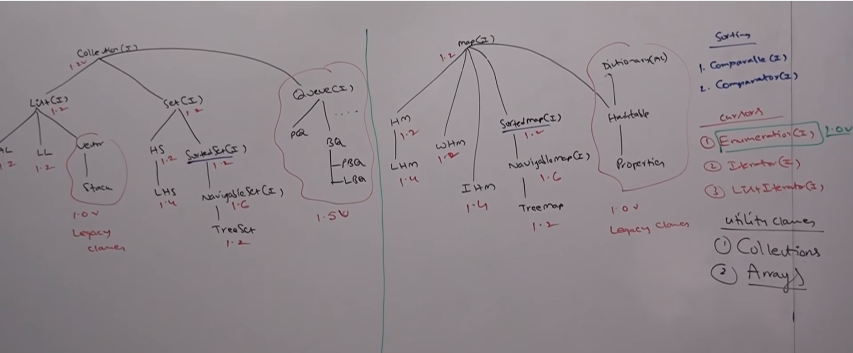 Collection(I)
1.2v
List(I)
1.2
AL
1.2
LL
1.2
Vector
Stack
1.0v
Legacy
Classes
Set(I)
1.2
HS
1.2
LHS
1.4
SortedSet(I)
1.2
NavigableSet(I)
1.6
TreeSet
1.2
Queue(I)
.....
PQ
BQ
PBQ
LBQ
1.5v
map(I)
1.2
HM
1.2
LHM
1.4
WHM
1.2
IHM
1.4
Sortedmap(I)
1.2
Navigablemap(I)
1.6
Treemap
1.2
Dictionary(AC)
Hashtable
Properties
1.0v
Legacy Classes
Sorting
1. Comparable(I)
2. Comparator(I)
Cursors
① Enumeration(I) 1.0v
② Iterator(I)
③ ListIterator(I)
utility classes
① Collections
② Arrays